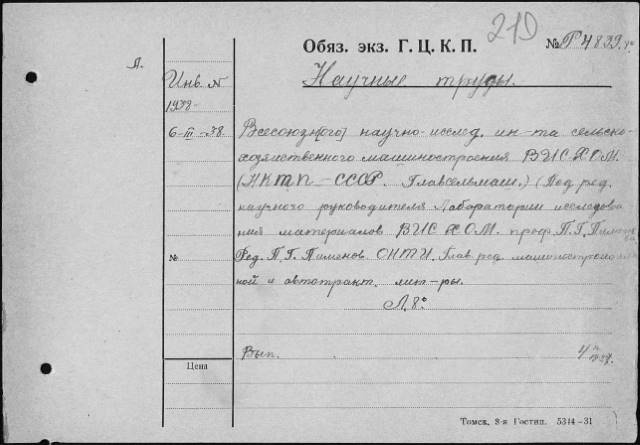 210
Обяз. экз. Г. Ц. К. П.
№ Р 4839
Л.
Инв. N
1978
Научные труды.
6-III-38.
Всесоюз[ого] научно-исслед. ин-та сельско-
хозяйственного машиностроения ВИСХОМ.
(НКТП-СССР. Главсельмаш.) (Под ред.
научного руководителя Лаборатории исследова
ния материалов ВИСХОМ. проф. П.Г. Пименова
№
Ред. П.Г. Пименов. ОНТИ. Глав. ред. машиностроитель
ной и автотракт. лит-ры.
Л. 8°
Вып.
4
Цена
Томск, 8-я Гостип. 5314-31